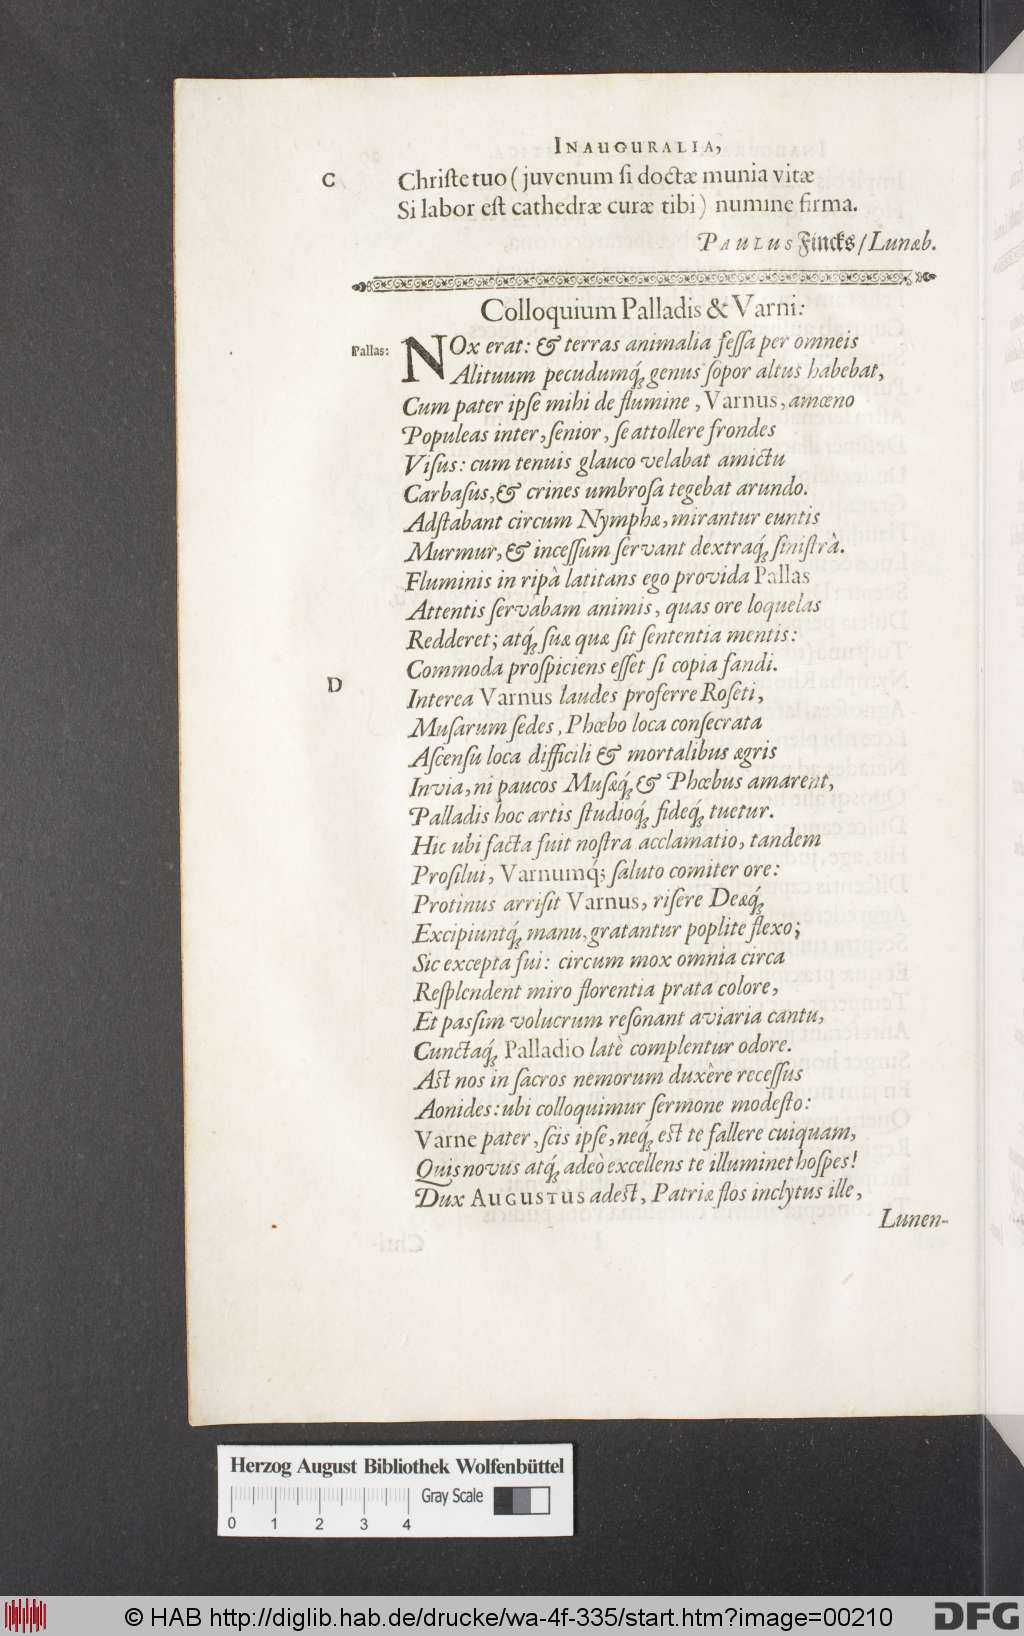 INAUGURALIA,
C
Christe tuo (juvenum si doctæ munia vitæ
Si labor est cathedræ curæ tibi) numine firma.
PAULUS Fincks / Lunæb.
Colloquium Palladis & Varni:
Pallas:
NOx erat: & terras animalia fessa per omneis
Alituum pecudumq́; genus sopor altus habebat,
Cum pater ipse mihi de flumine, Varnus, amœno
Populeas inter, senior, se attollere frondes
Visus: cum tenuis glauco velabat amictu
Carbasus, & crines umbrosa tegebat arundo.
Adstabant circum Nymphæ, mirantur euntis
Murmur, & incessum servant dextraq́; sinistrà.
Fluminis in ripà latitans ego provida Pallas
Attentis servabam animis, quas ore loquelas
Redderet; atq́; suæ quæ sit sententia mentis:
Commoda prospiciens esset si copia fandi.
D
Interea Varnus laudes proferre Roseti,
Musarum sedes, Phœbo loca consecrata
Ascensu loca difficili & mortalibus ægris
Invia, ni paucos Musæq́; & Phœbus amarent,
Palladis hoc artis studioq́; fideq́; tuetur.
Hic ubi facta fuit nostra acclamatio, tandem
Prosilui, Varnumq́; saluto comiter ore:
Protinus arrisit Varnus, risere Deæq́;
Excipiuntq́; manu, gratantur poplite flexo;
Sic excepta fui: circum mox omnia circa
Resplendent miro florentia prata colore,
Et passim volucrum resonant aviaria cantu,
Cunctaq́; Palladio latè complentur odore.
Ast nos in sacros nemorum duxère recessus
Aonides: ubi colloquimur sermone modesto:
Varne pater, scis ipse, neq́; est te fallere cuiquam,
Quis novus atq́; adeò excellens te illuminet hospes!
Dux AUGUSTUS adest, Patriæ flos inclytus ille,
Lunen-
Herzog August Bibliothek Wolfenbüttel
Gray Scale
0 1 2 3 4
© HAB http://diglib.hab.de/drucke/wa-4f-335/start.htm?image=00210
DFG